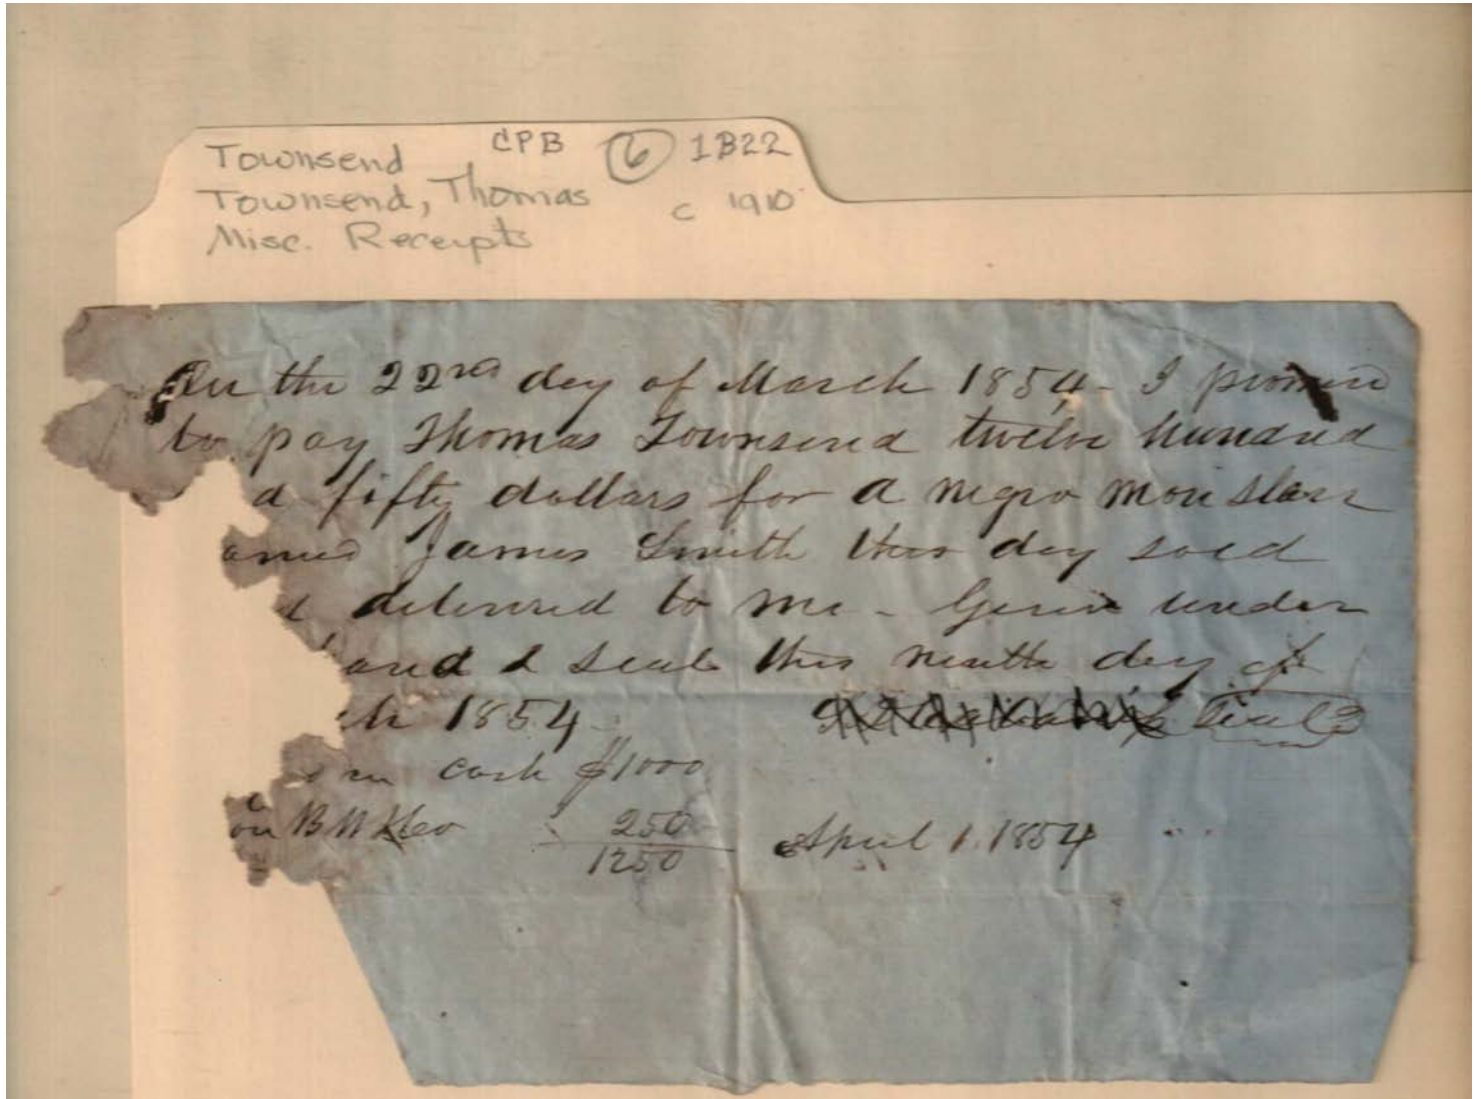 Townsend CPB 6 1B22
Townsend, Thomas c 1910
Misc. Receipts
On the 22nd day of March 1854 - I promise
to pay Thomas Townsend twelve hundred
d fifty dollars for a negro man slave
amed James Smith this day sold
d delivered to me - Given under
hand & seal this ninth day of
ch 1854 Seal
in cash $1000
on 250 April 1. 1854
1250